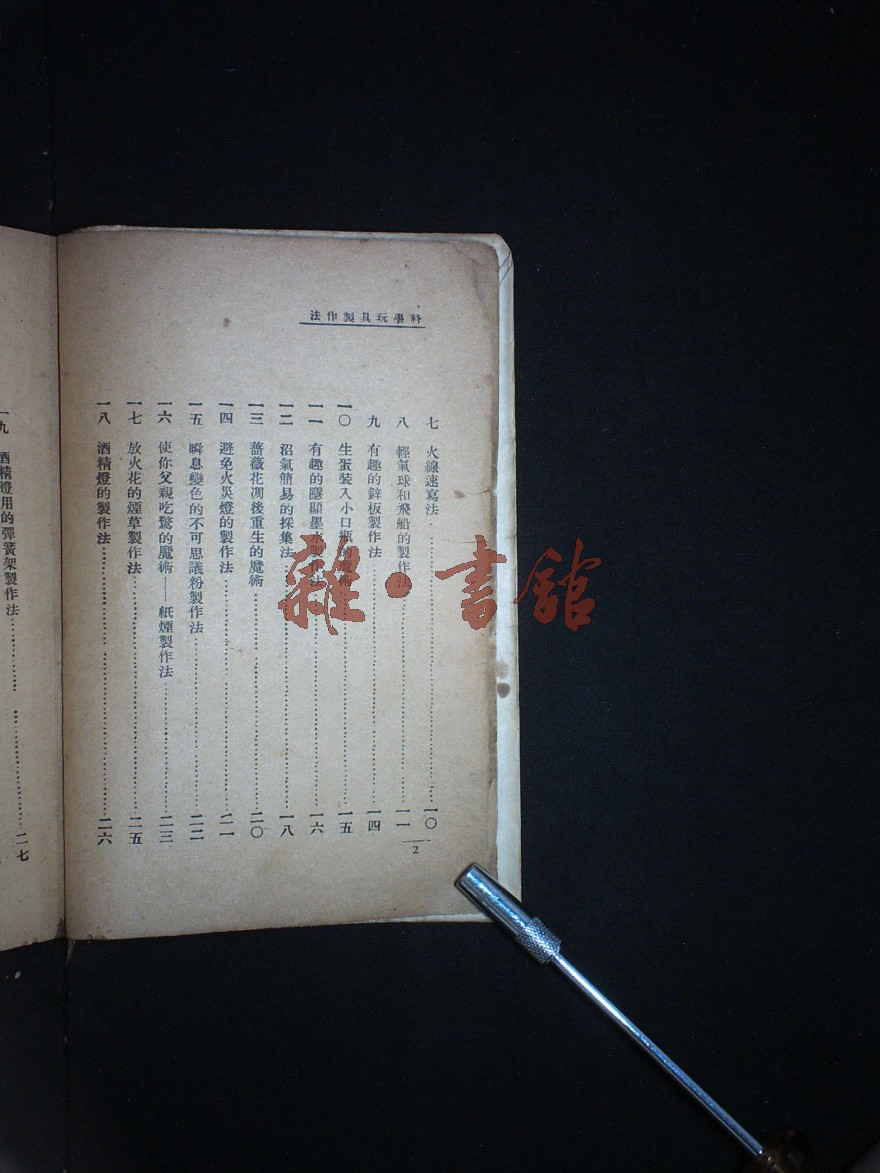 科學玩具製作法
七 火線速寫法 一〇
八 輕氣球和飛船的製作法 一一
九 有趣的鋅板製作法 一四
一〇 生蛋裝入小口瓶的魔術 一五
一一 有趣的隱顯墨水製作法 一六
一二 沼氣簡易的採集法 一八
一三 薔薇花凋後重生的魔術 二〇
一四 避免火災燈的製作法 二一
一五 瞬息變色的不可思議粉製作法 二二
一六 使你父親吃驚的魔術——紙煙製作法 二三
一七 放火花的煙草製作法 二五
一八 酒精燈的製作法 二六
2
一九 酒精燈用的彈簧架製作法 二七
雜·書館